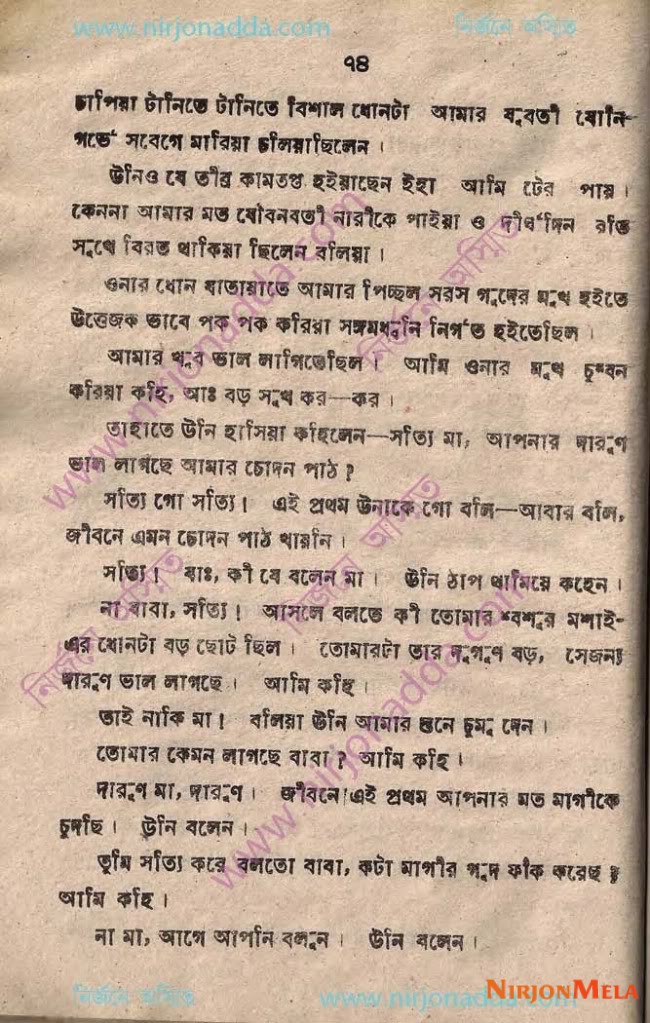 www.nirjonadda.com নির্জনে অস্মিত
৭৪
চাপিয়া টানিতে টানিতে বিশাল ধোনটা আমার যুবতী যোনি-
গর্ভে সবেগে মারিয়া চলিয়াছিলেন।
উনিও যে তীব্র কামতপ্ত হইয়াছেন ইহা আমি টের পায়।
কেননা আমার মত যৌবনবতী নারীকে পাইয়া ও দীর্ঘদিন রতি
সুখে বিরত থাকিয়া ছিলেন বলিয়া।
ওনার ধোন যাতায়াতে আমার পিচ্ছল সরস গুদের মুখ হইতে
উত্তেজক ভাবে পক পক করিয়া সঙ্গমধ্বনি নির্গত হইতেছিল।
আমার খুব ভাল লাগিতেছিল। আমি ওনার মুখ চুম্বন
করিয়া কহি, আঃ বড় সুখ কর—কর।
তাহাতে উনি হাসিয়া কহিলেন—সত্যি মা, আপনার দারুণ
ভাল লাগছে আমার চোদন পাঠ?
সত্যি গো সত্যি। এই প্রথম উনাকে গো বলি—আবার বলি,
জীবনে এমন চোদন পাঠ খায়নি।
সত্যি! যাঃ, কী যে বলেন মা। উনি ঠাপ থামিয়ে কহেন।
না বাবা, সত্যি! আসলে বলতে কী তোমার শ্বশুর মশাই-
এর ধোনটা বড় ছোট ছিল। তোমারটা তার দুগুণ বড়, সেজন্য
দারুণ ভাল লাগছে। আমি কহি।
তাই নাকি মা! বলিয়া উনি আমার স্তনে চুমু দেন।
তোমার কেমন লাগছে বাবা? আমি কহি।
দারুণ মা, দারুণ। জীবনে এই প্রথম আপনার মত মাগীকে
চুদছি। উনি বলেন।
তুমি সত্যি করে বলতো বাবা, কটা মাগীর গুদ ফাঁক করেছ?
আমি কহি।
না মা, আগে আপনি বলুন। উনি বলেন।
www.nirjonadda.com
নির্জনে অস্মিত
নির্জনে অস্মিত
নির্জনে অস্মিত
www.nirjonadda.com
নির্জনে অস্মিত www.nirjonadda.com
NIRJONMELA